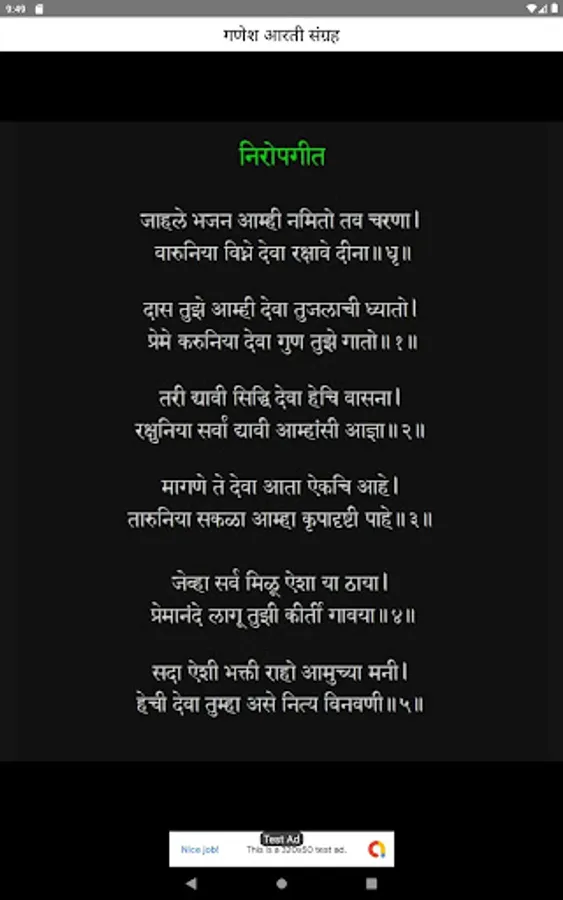 9:49
गणेश आरती संग्रह
निरोपगीत
जाहले भजन आम्ही नमितो तव चरणा।
वारुनिया विघ्ने देवा रक्षावे दीना॥धृ॥
दास तुझे आम्ही देवा तुजलाची ध्यातो।
प्रेमे करुनिया देवा गुण तुझे गातो॥१॥
तरी द्यावी सिद्धि देवा हेचि वासना।
रक्षुनिया सर्वां द्यावी आम्हांसी आज्ञा॥२॥
मागणे ते देवा आता ऐकचि आहे।
तारुनिया सकळा आम्हा कृपादृष्टी पाहे॥३॥
जेव्हा सर्व मिळू ऐशा या ठाया।
प्रेमानंदे लागू तुझी कीर्ती गावया॥४॥
सदा ऐशी भक्ती राहो आमुच्या मनी।
हेची देवा तुम्हा असे नित्य विनवणी॥५॥
Test Ad
Nice job! This is a 320x50 test ad.